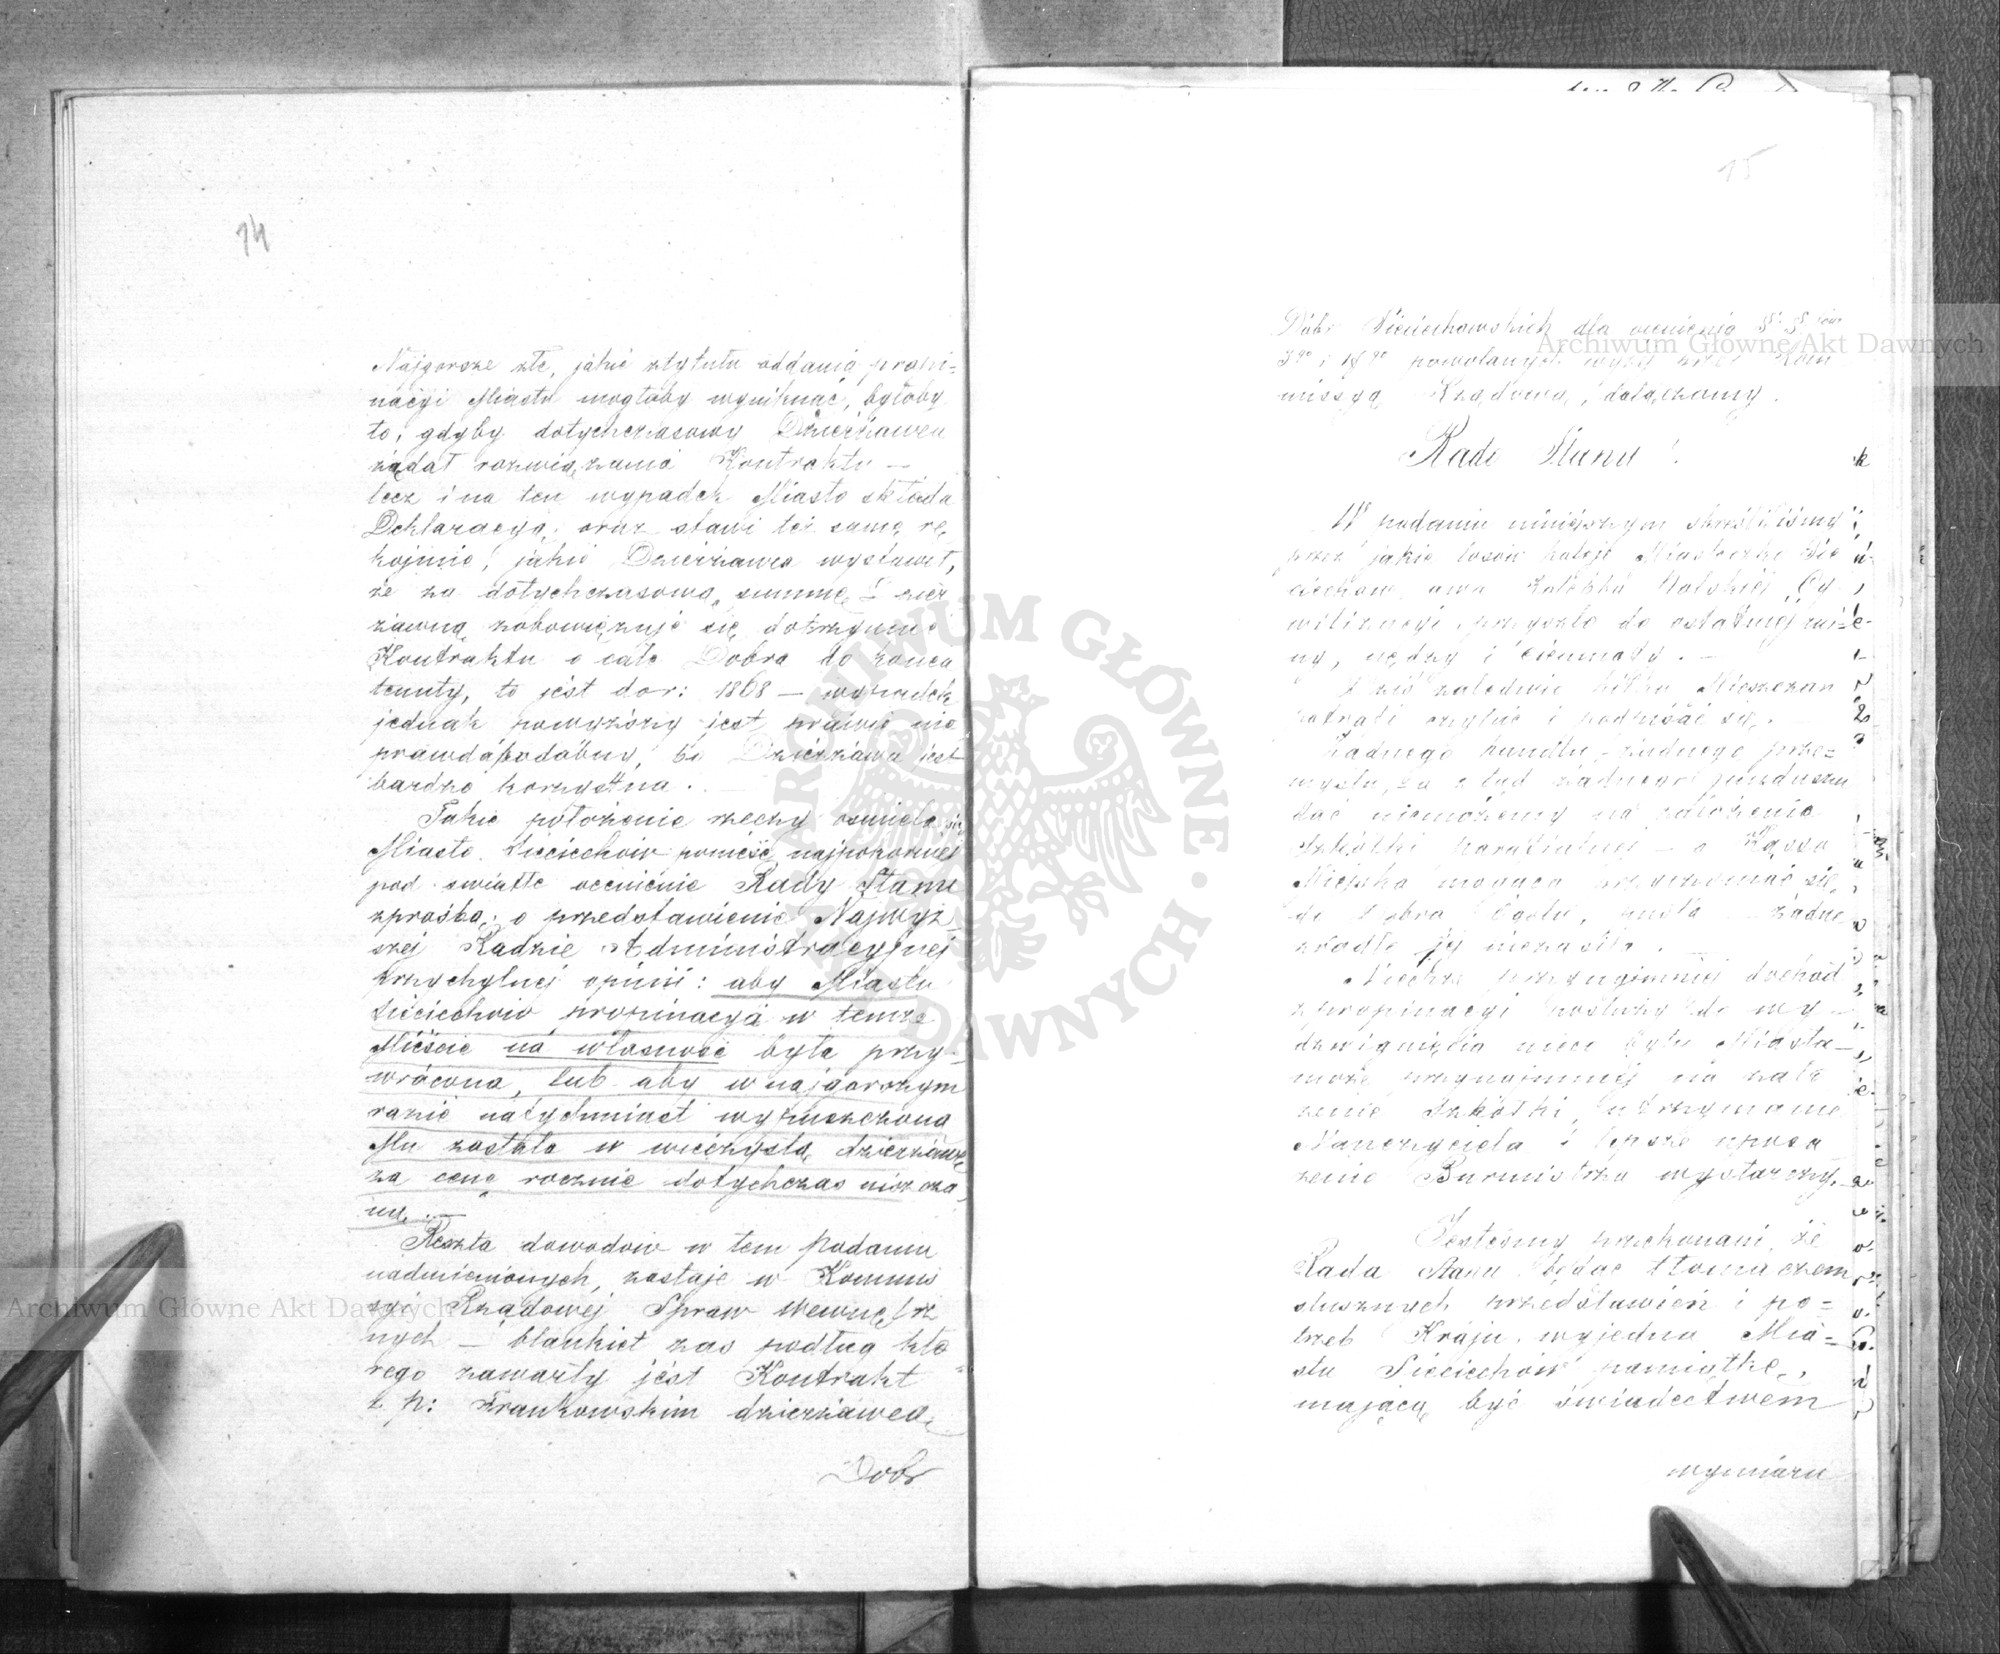 14
Najgorsze złe, jakie z tytułu oddania propi=
nacyi Miastu mogłoby wyniknąć, byłoby
to, gdyby dotychczasowy Dzierżawca
żądał rozwiązania Kontraktu —
lecz i na ten wypadek Miasto składa
Deklaracyą, oraz stawi też samę rę
kojmie, jakie Dzierżawca wystawił,
że za dotychczasową summę dzier
żawną zobowięzuje się dotrzymać
Kontraktu o całe Dobra do końca
tenuty, to jest do r: 1868 — wypadek
jednak powyższy jest prawie nie
prawdopodobny, bo Dzierżawa jest
bardzo korzystna. —
Takie położenie rzeczy ośmiela się
Miasto Sieciechów ponieść najpokorniej
pod światłe ocenienie Rady Stanu
z prośbą, o przedstawienie Najwyż
szej Radzie Administracyjnej
przychylnej opinii: aby Miastu
Sieciechów propinacya w temże
Mieście na własność była przy-
wrócona, lub aby w najgorszym
razie natychmiast wypuszczona
Mu została w wieczystą dzierżawę
za cenę rocznie dotychczas uiszcza
ną. —
Reszta dowodów w tem podaniu
nadmienionych, zostaje w Kommis
syi Rządowej Spraw Wewnętrz
nych — blankiet zaś podług któ
rego zawarty jest Kontrakt
z p: Frankowskim dzierżawcą
Dobr
15
Dóbr Sieciechowskich dla ocenienia §§
3go i 18go powołanych wyżej przez Kom
missyą Rządową, dołączamy.
Rado Stanu!
W podaniu niniejszym skreśliliśmy
przez jakie losów koleje Miasteczko Sie
ciechów, owa kolebka Polskiej Cy
wilizacyi, przyszło do ostatniej rui=
ny, nędzy i ciemnoty. —
Dziś zaledwie kilku Mieszczan
potrafi czytać i podpisać się. —
Żadnego handlu, żadnego prze=
mysłu, a z tąd żadnego funduszu
dać niemożemy na założenie
Szkółki parafialnej — a Kassa
Miejska mogąca przyczyniać się
do dobra Ogółu, pusta — żadne
źródło jej niezasila. —
Niechże przynajmniej dochód
z propinacyi posłuży do wy
dzwignięcia nieco bytu Miasta —
może przynajmniej na zało
żenie Szkółki, utrzymanie
Nauczyciela i lepsze uposa
żenie Burmistrza wystarczy. —
Jesteśmy przekonani, że
Rada Stanu będąc tłomaczem
słusznych przedstawień i po=
trzeb Kraju, wyjedna Mia=
stu Sieciechów pamiątkę,
mającą być świadectwem
wymiaru
Archiwum Główne Akt Dawnych
Archiwum Główne Akt Dawnych
ARCHIWUM GŁÓWNE AKT DAWNYCH